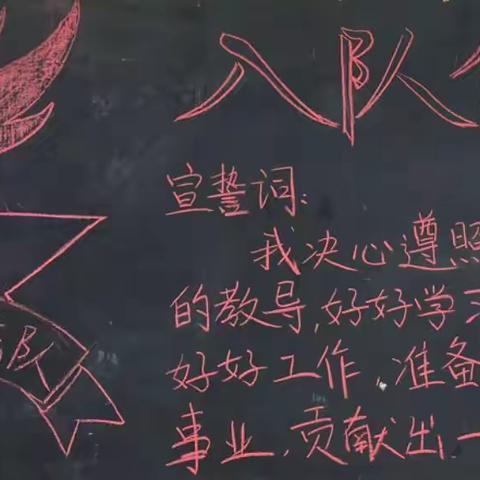 入队
宣誓词:
我决心遵照
的教导,好好学习
好好工作,准备
事业,贡献出一
队